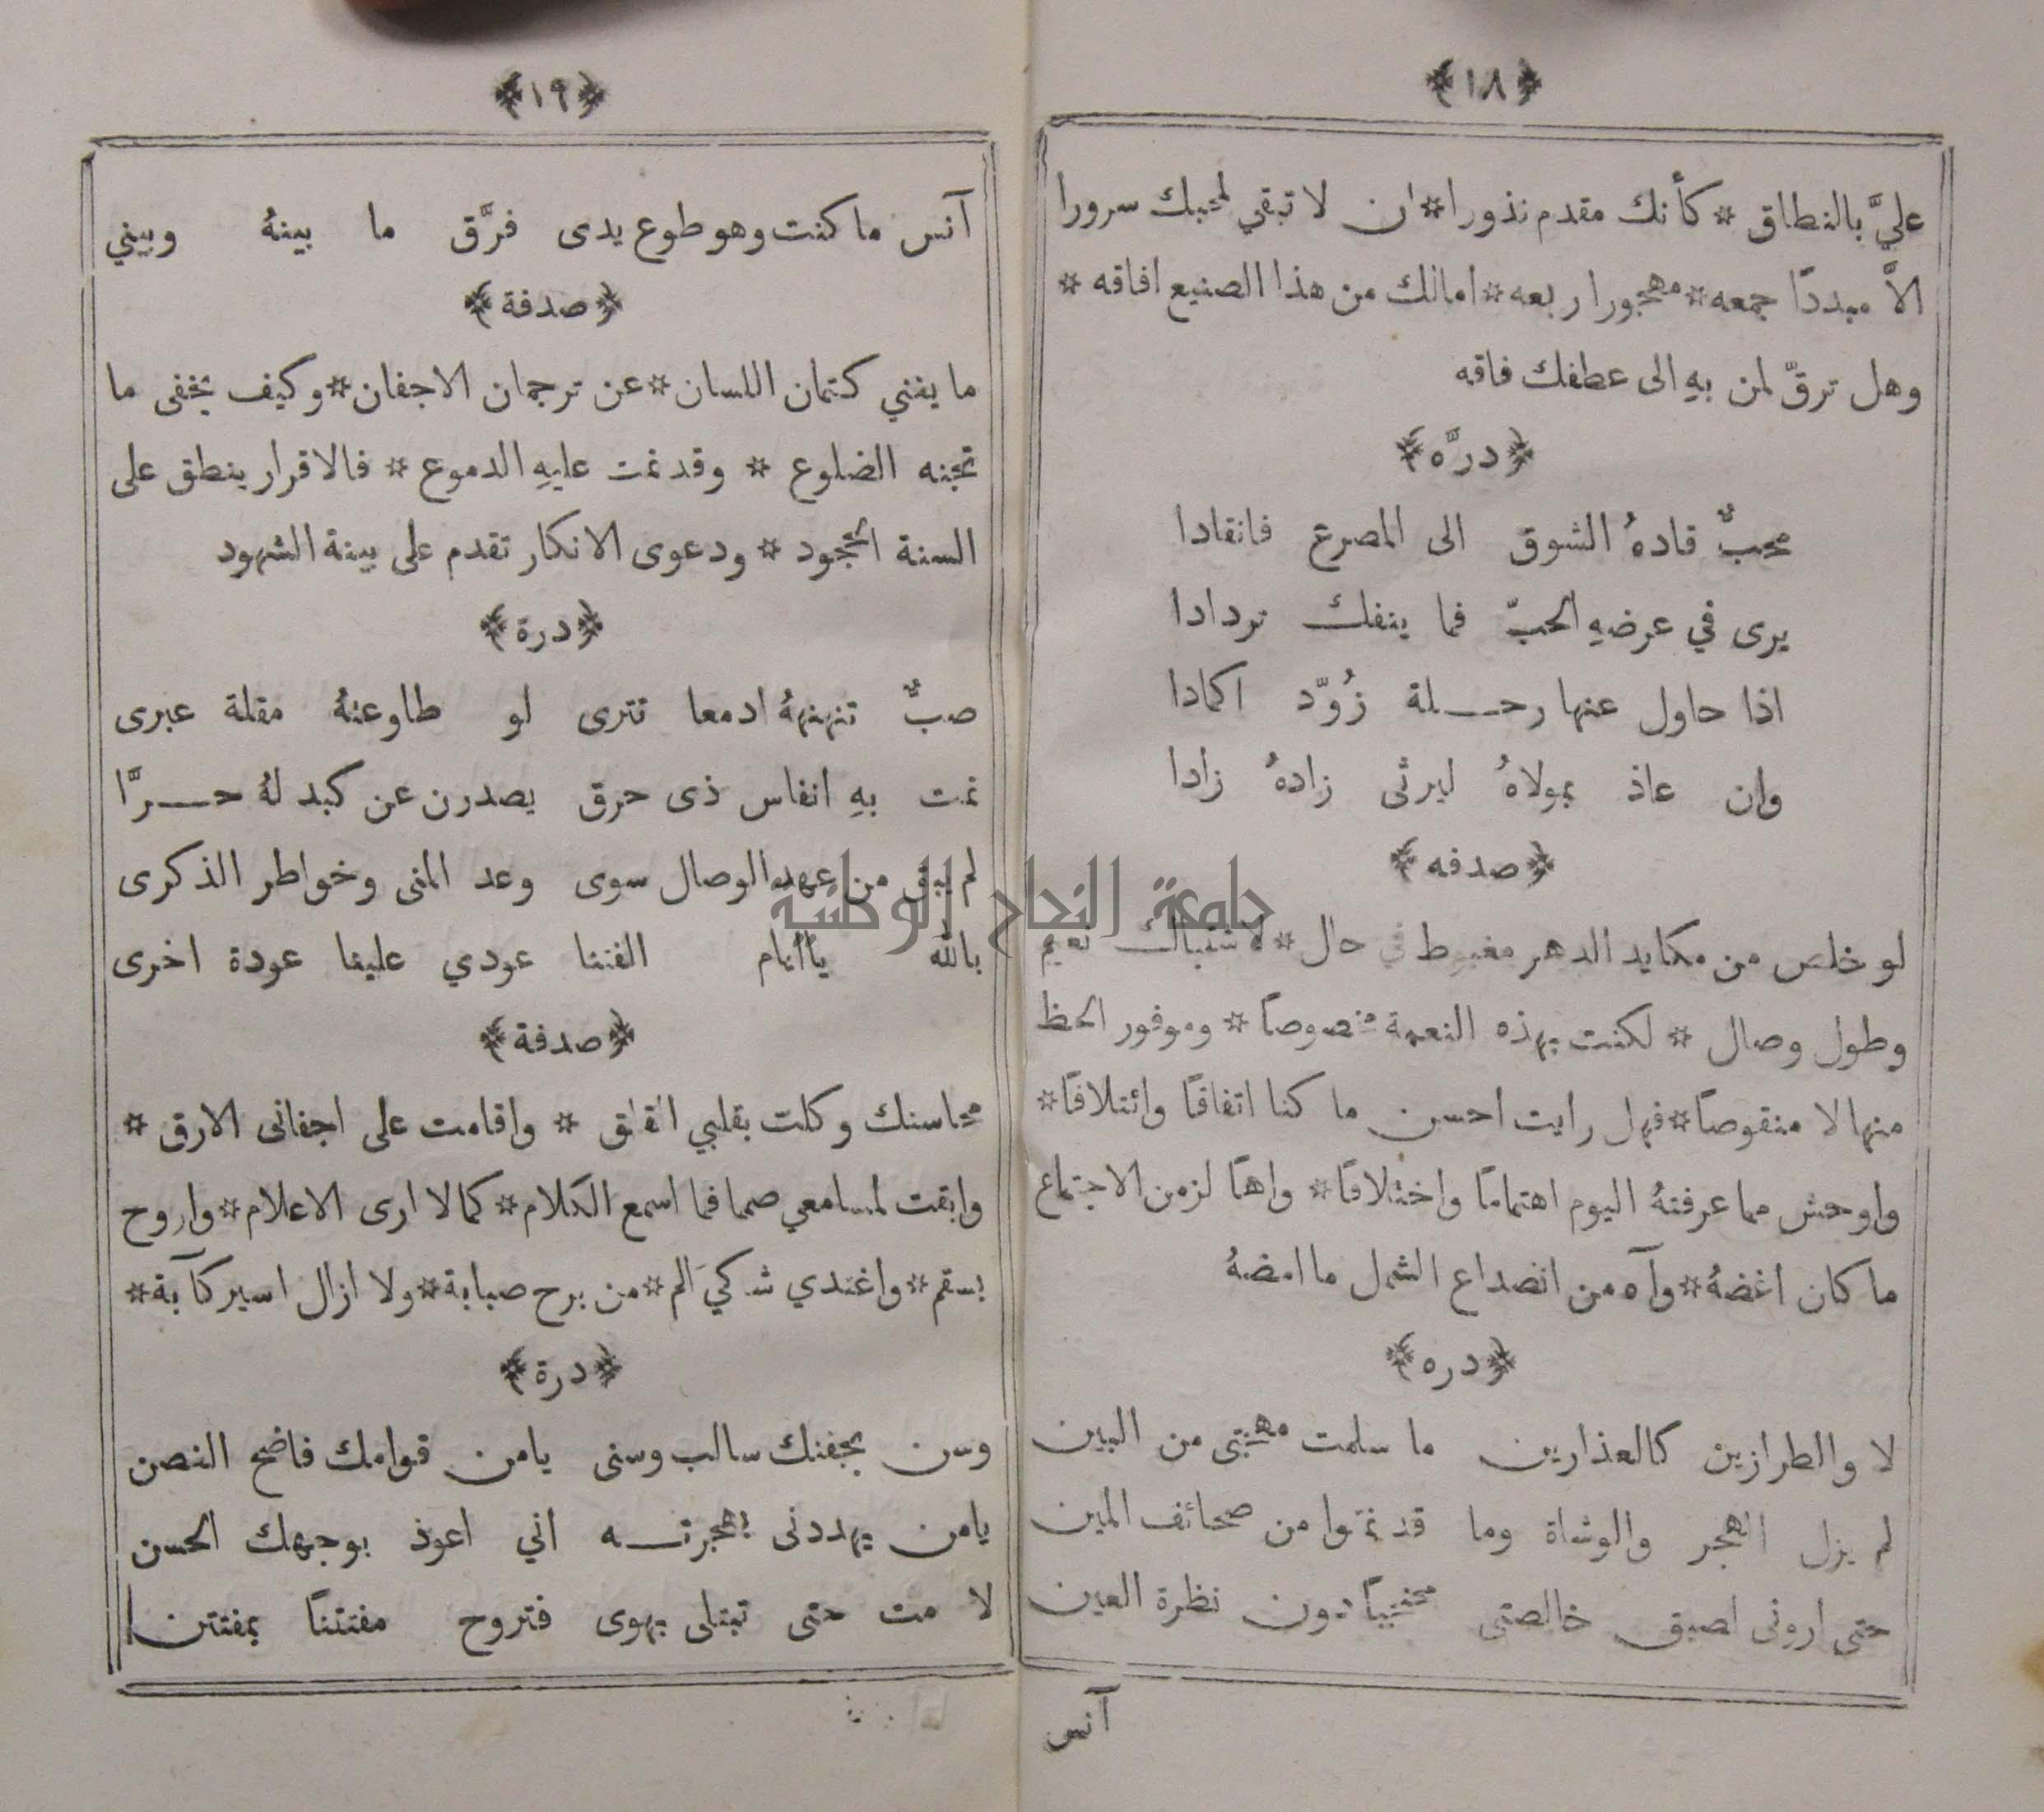 ﴿١٨﴾
عليَّ بالنطاق * كأنك مقدم نذورا * ان لا تبقي لمحبك سرورا
الاَّ مبددًا جمعه * مهجورا ربعه * امالك من هذا الصنيع افاقه *
وهل ترقّ لمن بهِ الى عطفك فاقه
﴿درَّه﴾
محبٌّ قادهُ الشوق الى المصرع فانقادا
يرى في عرضهِ الحبّ فما ينفك تردادا
اذا حاول عنها رحلة زُوّد اكمادا
وان عاذ بمولاهُ ليرثى زادهُ زادا
﴿صدفه﴾
لو خلص من مكايد الدهر مغبوط في حال * لاشتباك نعيم
وطول وصال * لكنت بهذه النعمة مخصوصاً * وموفور الحظ
منها لا منقوصاً * فهل رايت احسن ما كنا اتفاقًا وائتلافًا *
واوحش مما عرفتهُ اليوم اهتمامًا واختلافًا * واهًا لزمن الاجتماع
ما كان اغضهُ * وآه من انصداع الشمل ما امضهُ
﴿دره﴾
لا والطرازين كالعذارين ما سلمت مهجتى من البين
لم يزل الهجر والوشاة وما قد نمّوا من صحائف المين
حتى ارونى لصيق خالصتى مختبيًا دون نظرة العين
آنس
﴿١٩﴾
آنس ما كنت وهو طوع يدى فرَّق ما بينهُ وبيني
﴿صدفة﴾
ما يغني كتمان اللسان * عن ترجمان الاجفان * وكيف يخفى ما
تجنه الضلوع * وقد نمت عليهِ الدموع * فالاقرار ينطق على
السنة الجحود * ودعوى الانكار تقدم على بينة الشهود
﴿درة﴾
صبٌّ تنهنههُ ادمعا تترى لو طاوعتهُ مقلة عبرى
نمت بهِ انفاس ذى حرق يصدرن عن كبد لهُ حرَّا
لم يبق من عهد الوصال سوى وعد المنى وخواطر الذكرى
بالله يا ايام الفتنا عودي علينا عودة اخرى
﴿صدفة﴾
محاسنك وكلت بقلبي القلق * واقامت على اجفانى الارق *
وابقت لمسامعي صمما فما اسمع الكلام * كما لا ارى الاعلام * واروح
بسقم * واغتدي شكيَ الم * من برح صبابة * ولا ازال اسير كآبة *
﴿درة﴾
وسن بجفنك سالب وسنى يامن قوامك فاضح الغصن
يامن يهددنى بهجرته اني اعوذ بوجهك الحسن
لا مت حتى تبتلى بهوى فتروح مفتتنًا بمفتتن
جامعة النجاح الوطنية